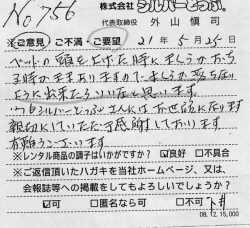 No 756
株式会社 シルバーとっぷ
代表取締役 外山慎司
※ご意見 ご不満 ご要望 21年5月25日
ベットの頭を上げた時にまくらがおち
る時がありますので、まくらが落ちない
ように出来たらいいなと思います
シルバーとっぷさんにはお世話になります
親切にしていただき感謝しております
有難うございます
※レンタル商品の調子はいかがですか? ☑良好 □不具合
※ご返信頂いたハガキを当社ホームページ、又は、
会報誌等への掲載をしてもよろしいでしょうか?
☑可 □匿名なら可 □不可
08.12.15,000